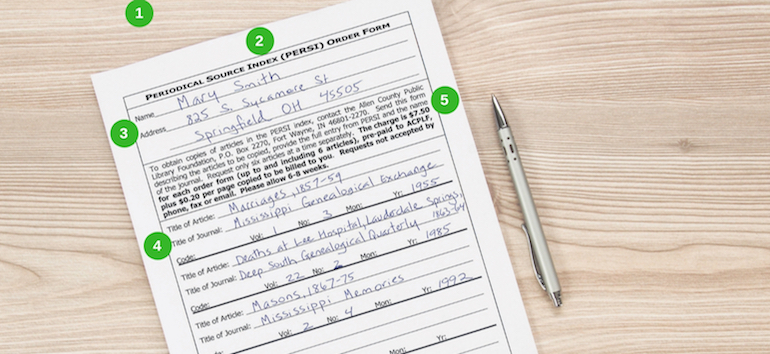 1
2
PERIODICAL SOURCE INDEX (PERSI) ORDER FORM
Name Mary Smith
Address 825 S Sycamore St
Springfield OH 45505
3
5
To obtain copies of articles in the PERSI index, contact the Allen County Public
Library Foundation, P.O. Box 2270, Fort Wayne, IN 46801-2270. Send this form
describing the articles to be copied, provide the full entry from PERSI and the name
of the journal. Request only six articles at a time separately. The charge is $7.50
for each order form (up to and including 6 articles), pre-paid to ACPLF,
plus $0.20 per page copied to be billed to you. Requests not accepted by
phone, fax or email. Please allow 6-8 weeks.
Title of Article: Marriages, 1857-59
Title of Journal: Mississippi Genealogical Exchange
Code: Vol: 1 No: 3 Mon: Yr: 1955
4
Title of Article: Deaths at Lee Hospital, Lauderdale Springs, 1863-64
Title of Journal: Deep South Genealogical Quarterly
Code: Vol: 22 No: 2 Mon: Yr: 1985
Title of Article: Masons, 1867-75
Title of Journal: Mississippi Memories
Vol: 2 No: 4 Mon: Yr: 1992
Code:
Title of Article:
Title of Journal:
Vol: No: Mon: Yr: